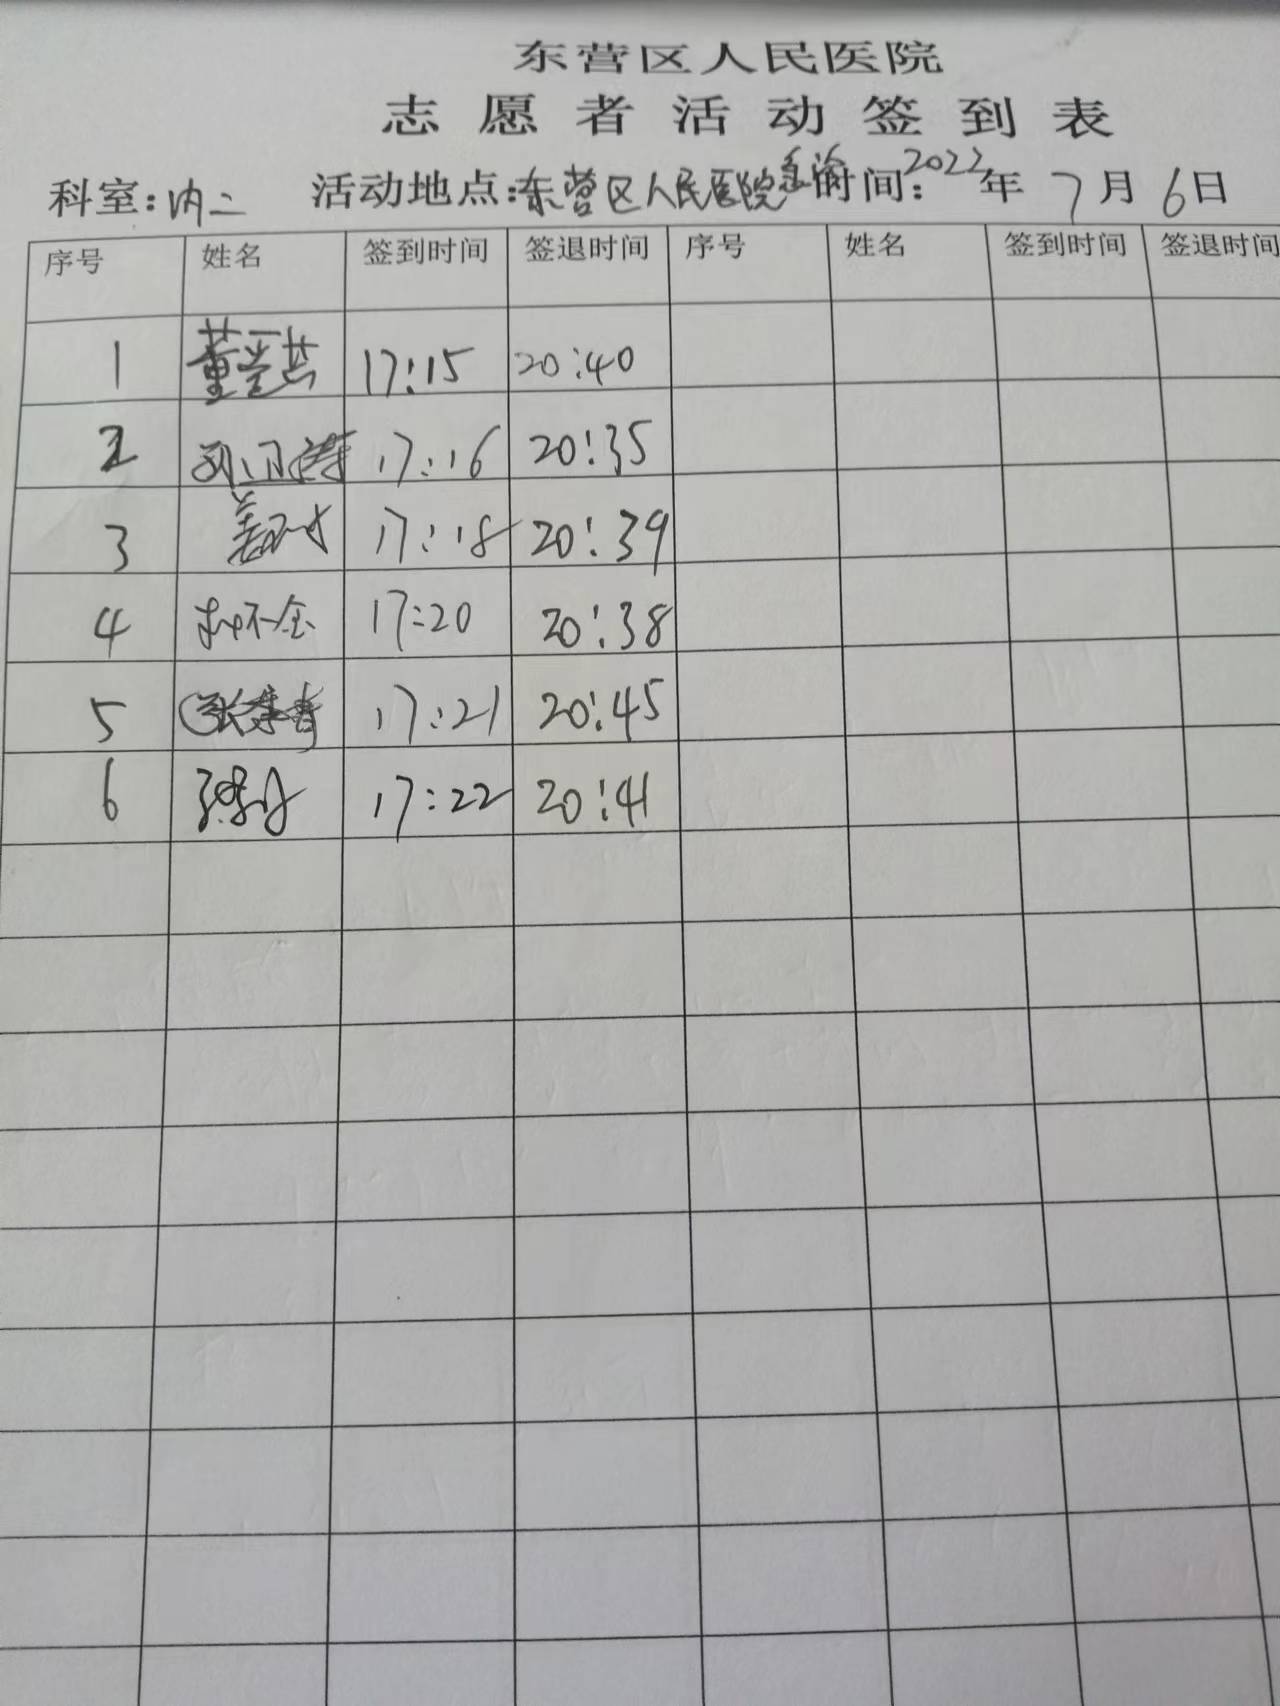 东营区人民医院
志愿者活动签到表
科室:内二 活动地点:东营区人民医院急诊 时间:2022年7月6日
序号 姓名 签到时间 签退时间 序号 姓名 签到时间 签退时间
1 17:15 20:40
2 17:16 20:35
3 17:18 20:39
4 17:20 20:38
5 17:21 20:45
6 17:22 20:41